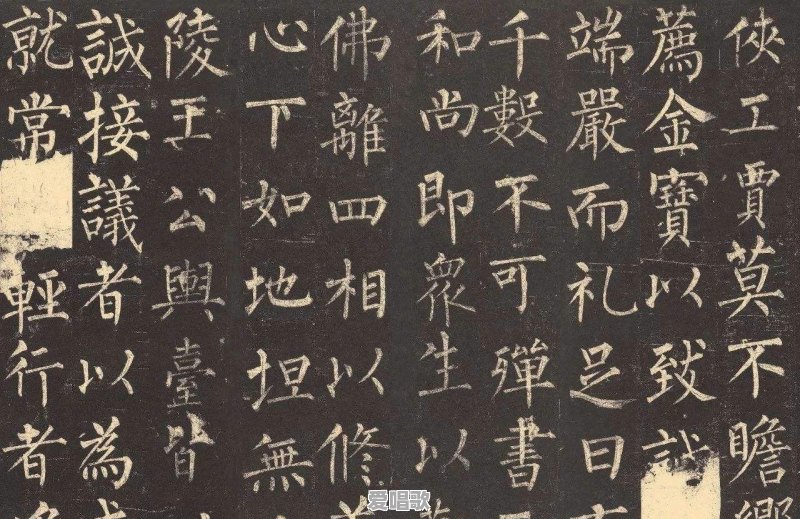 俠工賈莫不瞻嚮
薦金寶以致誠
端嚴而礼足曰有
千數不可殫書
和尚即眾生以
佛離四相以修善
心下如地坦無
陵王公輿臺皆
誠接議者以為成
就常輕行者
爱唱歌